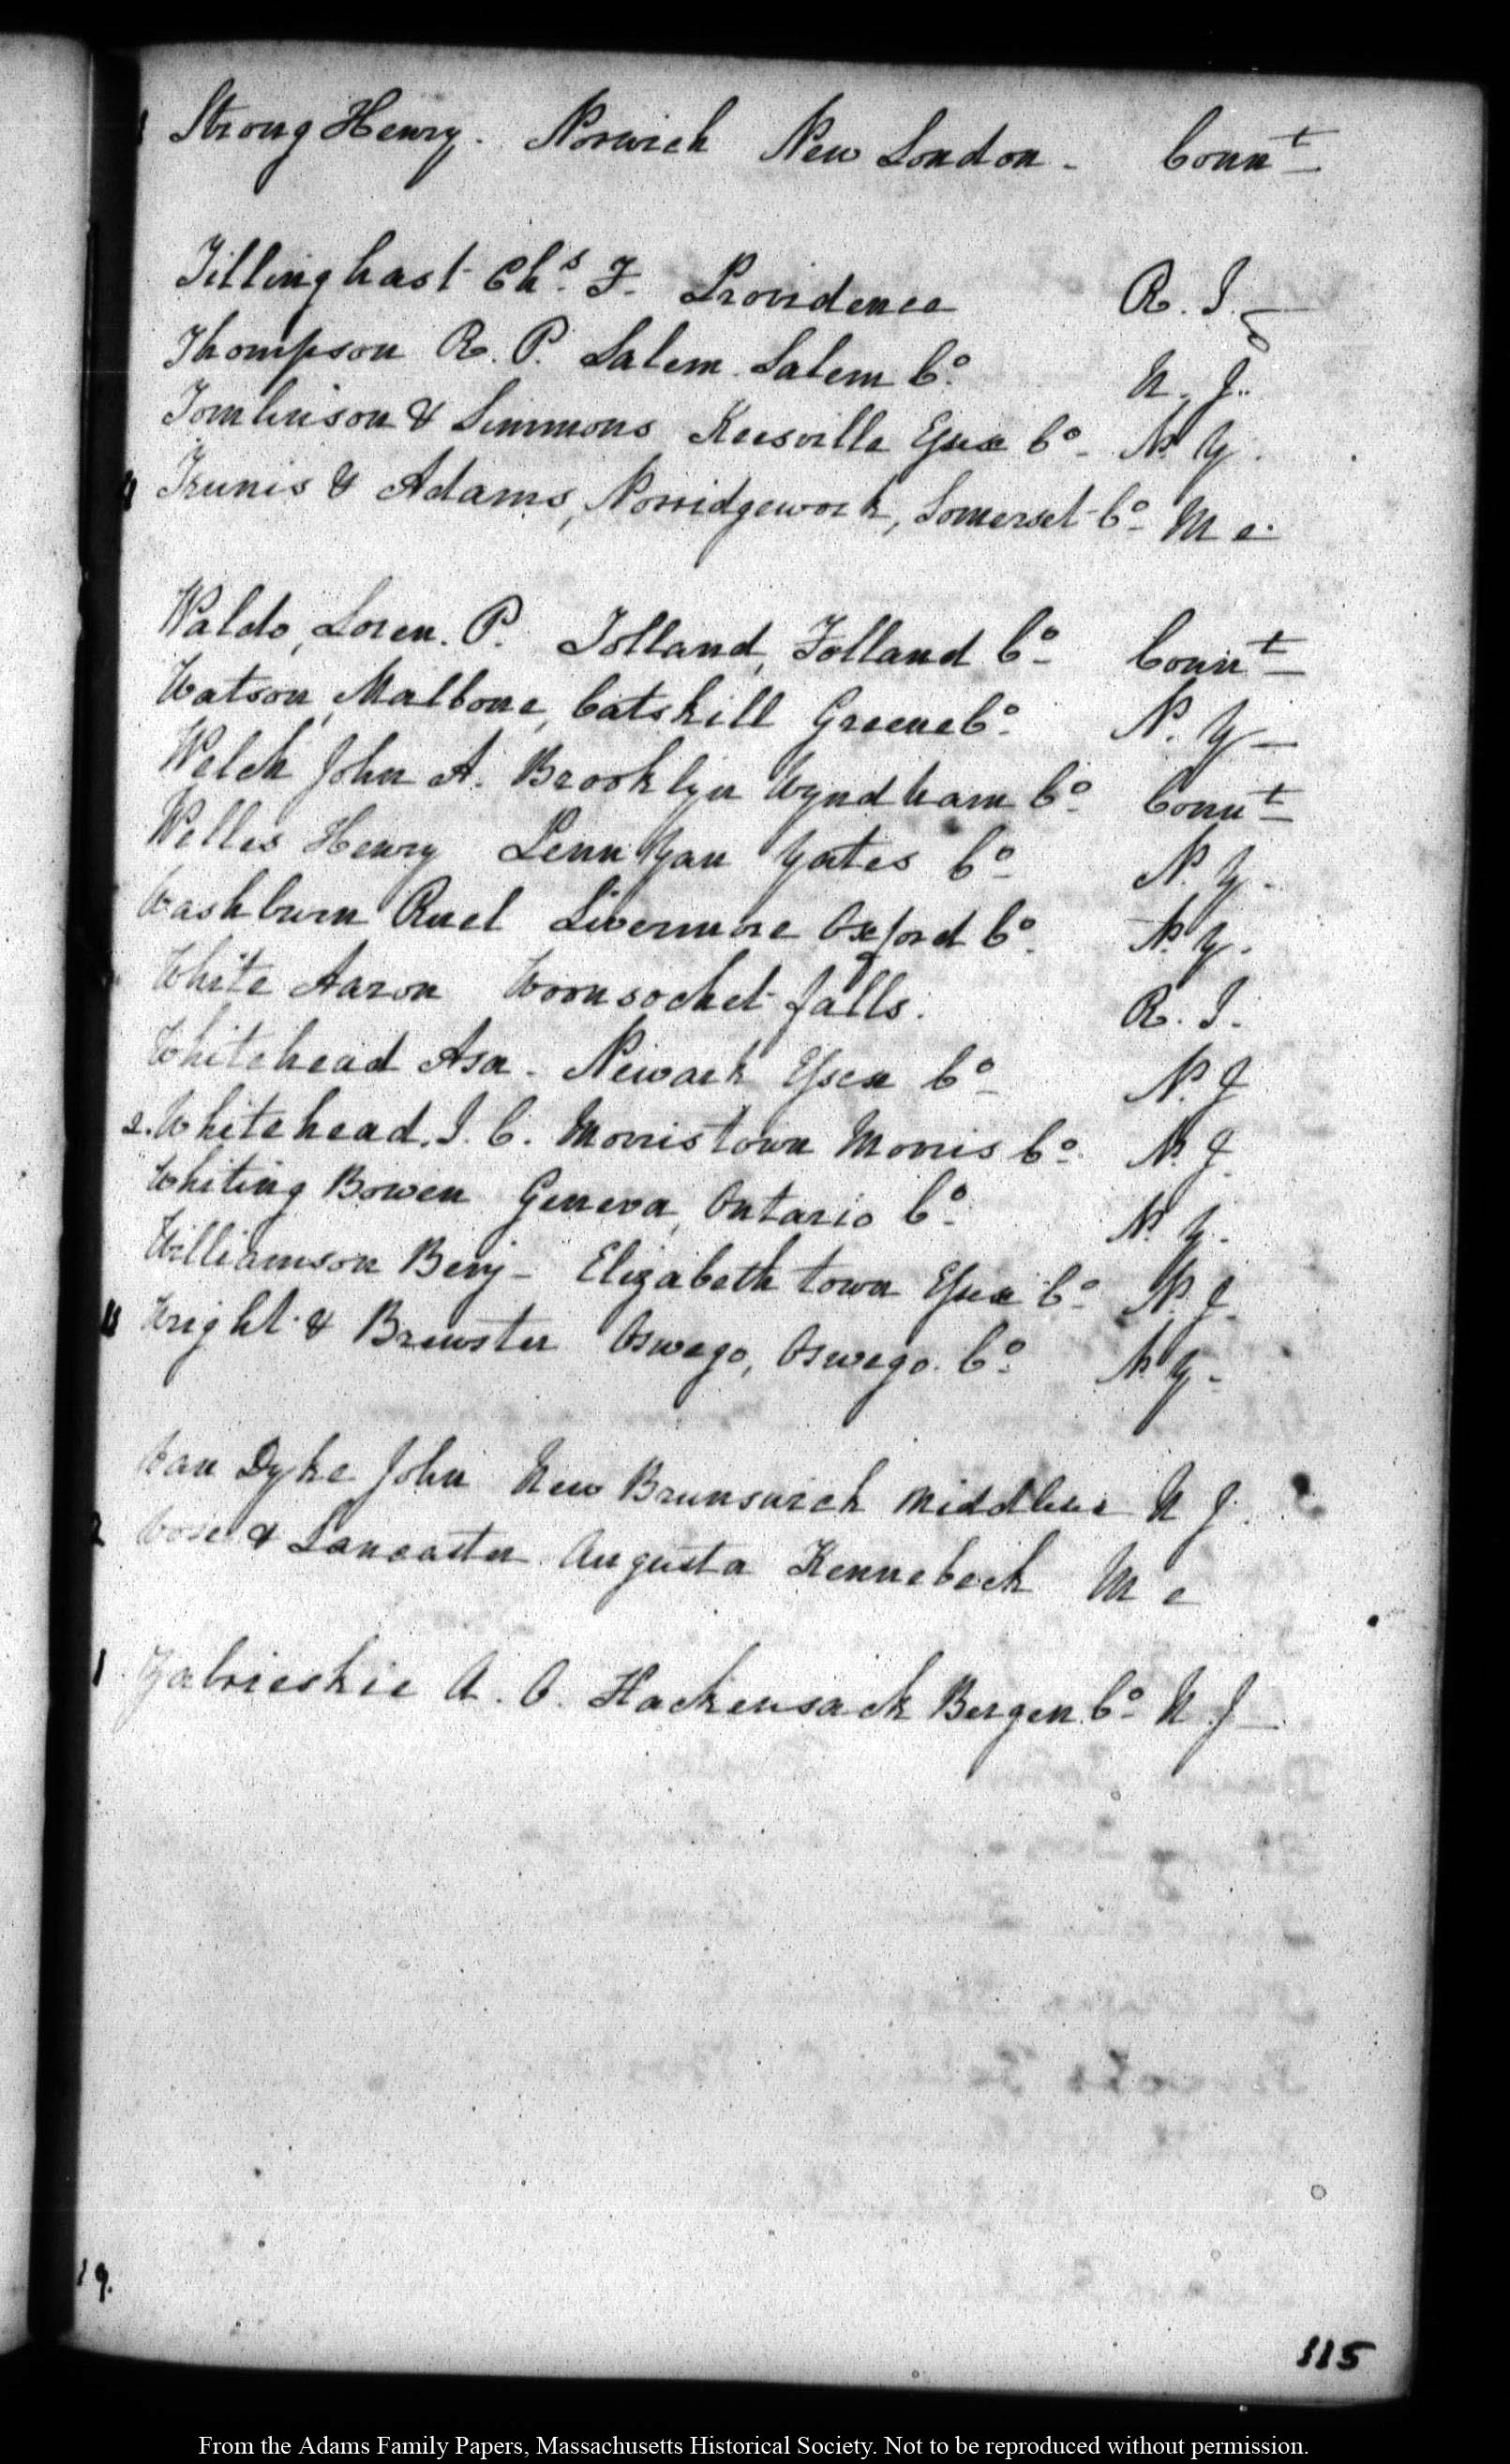 Strong Henry. Norwich New London - Connt
Tillinghast Chs. F. Providence R. I.
Thompson R. P. Salem. Salem Co. N. J.
Tomlinson & Simmons Keesville Essex Co. N. Y.
4 Trunis & Adams, Norridgework, Somerset Co. Me.
Waldo, Loren. P. Tolland, Tolland Co. Connt
Watson, Malbone, Catskill Greene Co. N. Y.
Welch John A. Brooklyn Wyndham Co. Connt
Welles Henry Penn Yan Yates Co. N. Y.
Washburn Ruel Livermore Oxford Co. N. Y.
White Aaron Woonsocket falls. R. I.
Whitehead Asa - Newark Essex Co. N. J
2. Whitehead. I. C. Morristown Morris Co. N. J.
Whiting Bowen Geneva, Ontario Co. N. Y.
Williamson Benj - Elizabeth town Essex Co. N. J.
11 Wright & Brewster Oswego, Oswego. Co. N. Y.
Van Dyke John New Brunswick Middlesex N J.
2 Vose & Lancaster Augusta Kennebeck Me
1 Zabrieskie A. O. Hackensack Bergen. Co. N. J
19.
115
From the Adams Family Papers, Massachusetts Historical Society. Not to be reproduced without permission.